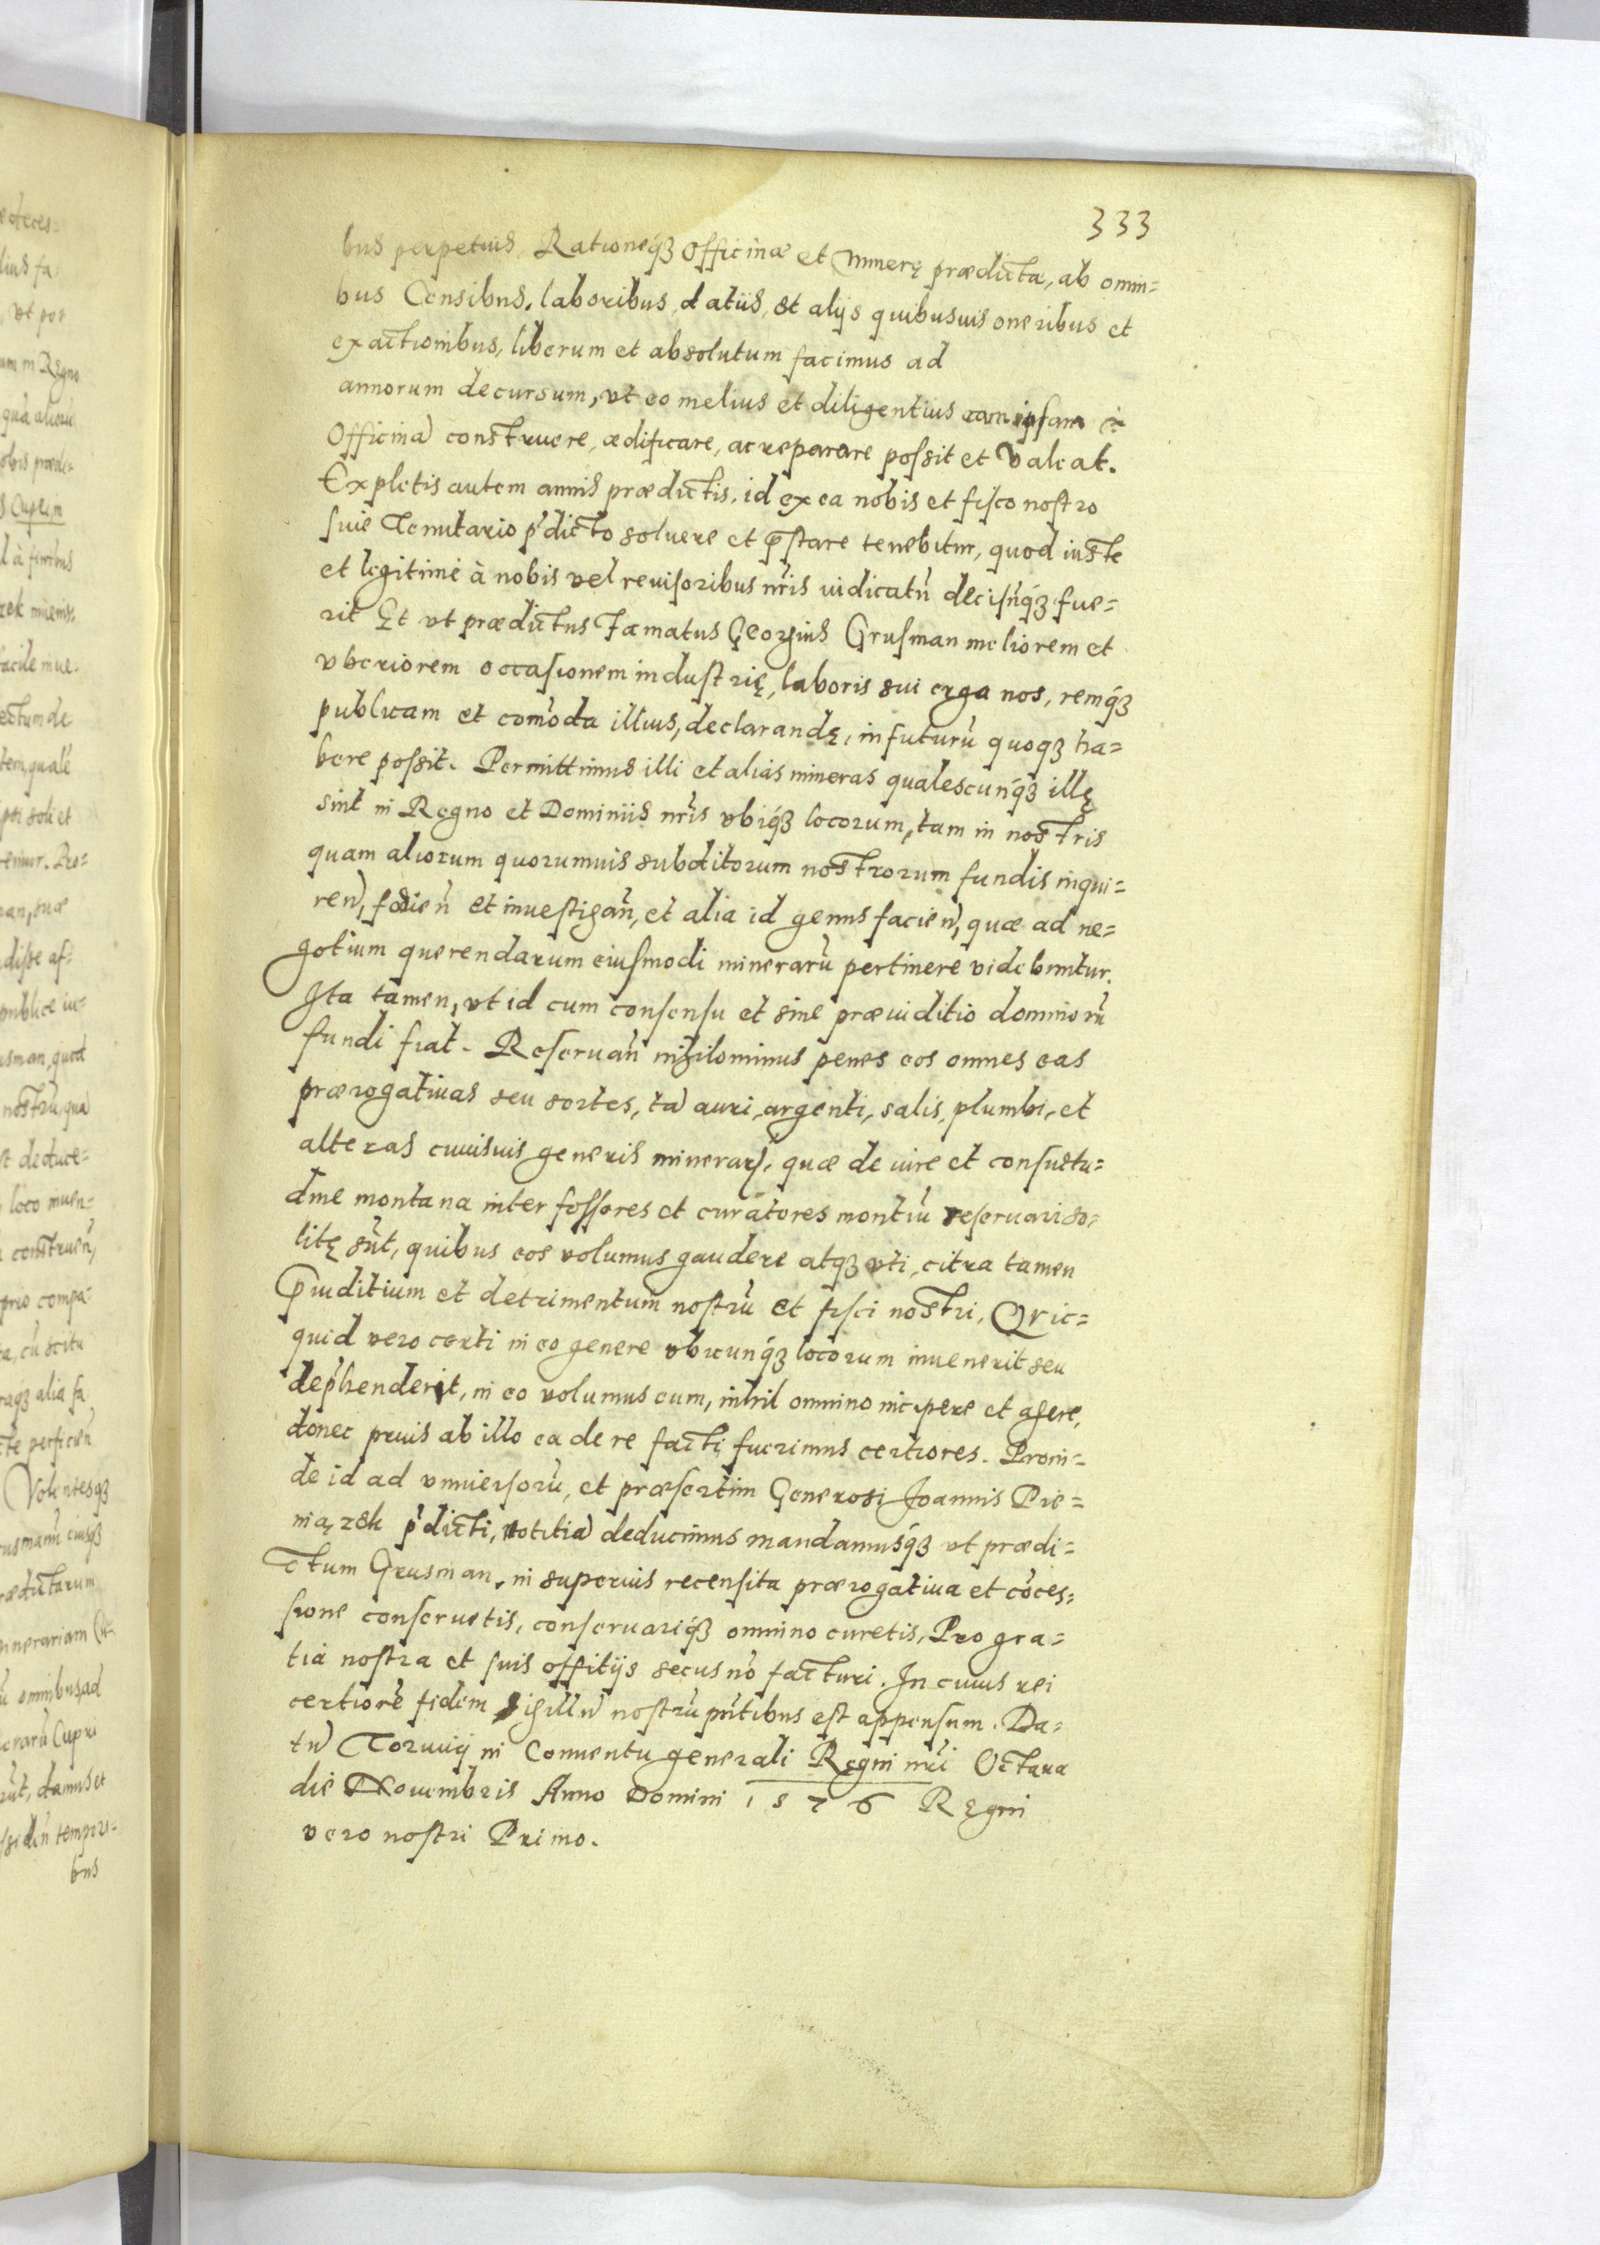 333
bus perpetuis, Rationeq́ꝫ Officinæ et minerę prædicta, ab omni=
bus Censibus, laboribus, datiis, et alijs quibusuis oneribus et
exactionibus, liberum et absolutum facimus ad
annorum decursum, vt eo melius et diligentius eam ipsam
Officinã construere, ædificare, ac reparare possit et Valeat.
Expletis autem annis prædictis, id ex ea nobis et fisco nostro
siue Tenutario p̃dicto soluere et p̃stare tenebitur, quod iuste
et legitime à nobis vel reuisoribus nr̃is iudicatũ decisũq́ꝫ fue=
rit Et vt prædictus Famatus Georgius Grusman meliorem et
vberiorem occasionem industrię, laboris sui erga nos, remq́ꝫ
publicam et com̃oda illius, declarandę, in futurũ quoqꝫ ha=
bere possit. Permittimus illi et alias mineras qualescunq́ꝫ illę
sint in Regno et Dominiis nr̃is vbiq́ꝫ locorum, tam in nostris
quam aliorum quorumuis subditorum nostrorum fundis inqui=
ren̄, fodien̄ et inuestigan̄, et alia id genus facien̄, quæ ad ne=
gotium querendarum eiusmodi minerarũ pertinere videbuntur.
Ita tamen, vt id cum consensu et sine præiuditio dominorũ
fundi fiat. Reseruan̄ nihilominus penes eos omnes eas
prærogatiuas seu sortes, tã auri, argenti, salis, plumbi, et
alteras cuiusuis generis minerarꝫ, quæ de iure et consuetu=
dine montana inter fossores et curatores montiũ reseruari so=
litę sũt, quibus eos volumus gaudere atqꝫ vti, citra tamen
p̃iuditium et detrimentum nostrũ et fisci nostri, Qvic=
quid vero certi in eo genere vbicunq́ꝫ locorum inuenerit seu
dep̃henderit, in eo volumus eum, nihil omnino incipere et agere,
donec prius ab illo ea de re facti fuerimus certiores. Proin=
de id ad vniuersorũ, et præsertim Generosi Joannis Pie=
niązek p̃dicti, notitiã deducimus mandamusq́ꝫ vt prædi=
ctum Grusman, in superius recensita prærogatiua et cõces=
sione conseruetis, conseruariq́ꝫ omnino curetis, Pro gra=
tia nostra et suis offitijs secus nõ facturi. In cuius rei
certiorẽ fidem Sigillũ nostrũ pñtibus est appensum. Da=
tũ Toruuij in Conuentu generali Regni nr̃i Octaua
die Nouembris Anno Domini 1576 Regni
vero nostri Primo.